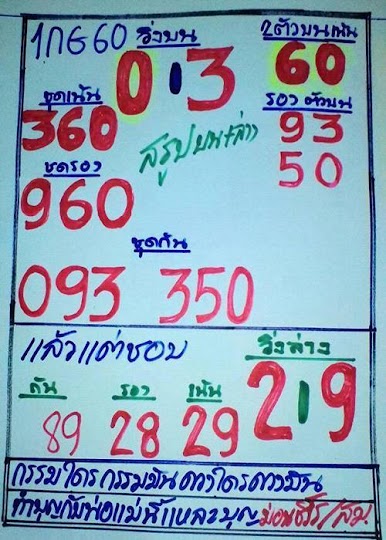 1ก660 วิ่งบน 2ตัวบนเน้น
0 • 3 60
ชุดเน้น รองตัวบน
360 93
สรุปบน+ล่าง 50
ชุดรอง
960
ชุดกัน
093 350
แล้วแต่ชอบ วิ่งล่าง
กัน รอง เน้น 2 • 9
89 28 29
กรรมใครกรรมมันดวงใครดวงมัน
ทำบุญกับพ่อแม่นี่แหละบุญ